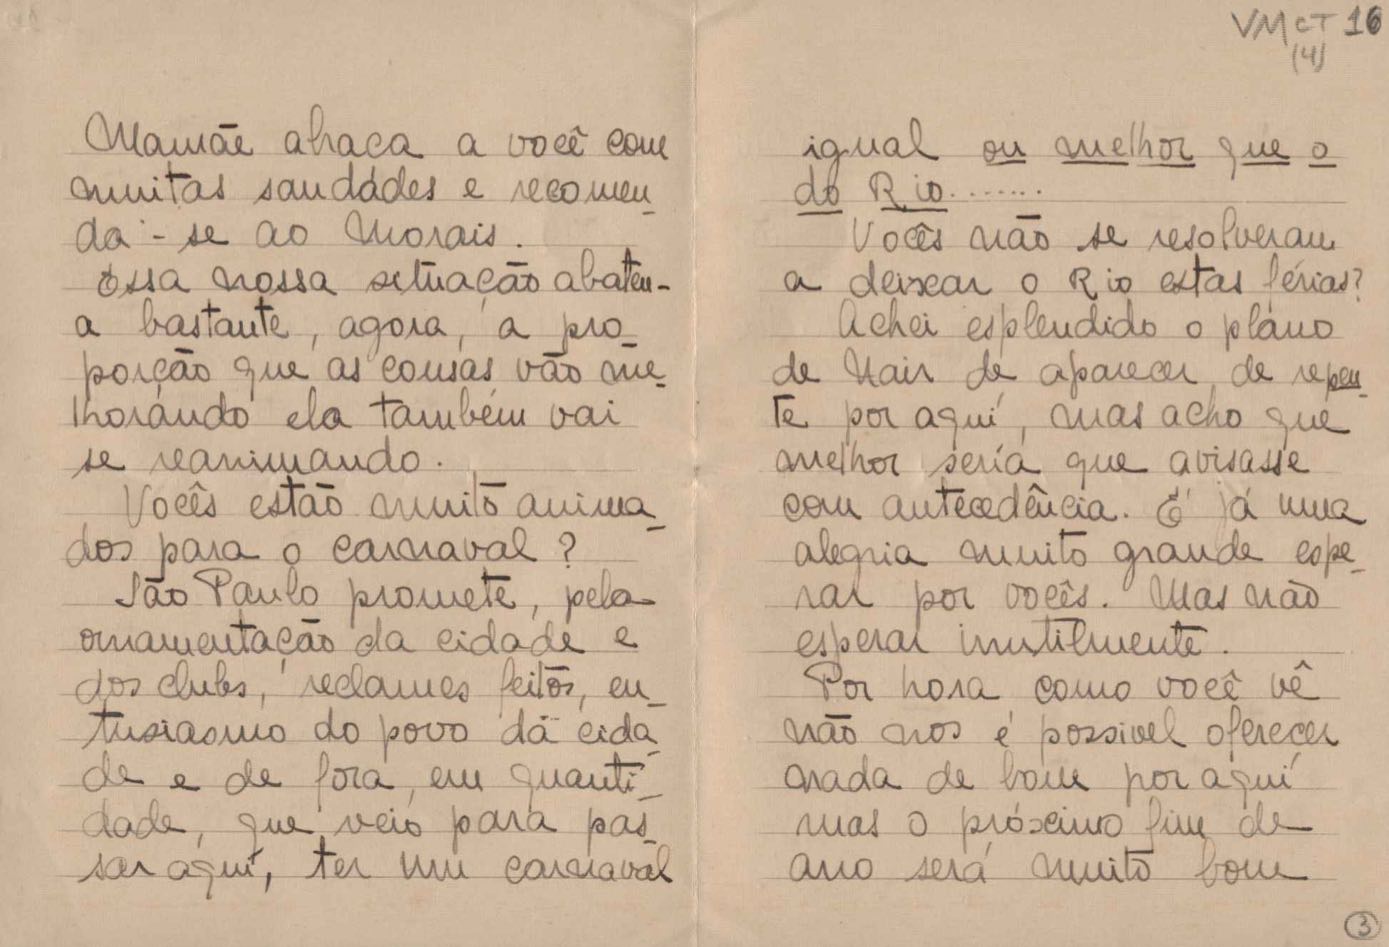 VMcT 16
(4)
Mamãe abraça a você com
muitas saudades e recomen_
da-se ao Morais.
Essa nossa situação abateu-
a bastante, agora, a pro_
porção que as cousas vão me_
lhorando ela também vai
se reanimando.
Vocês estão muito anima_
dos para o carnaval?
São Paulo promete, pela
ornamentação da cidade e
dos clubs, reclames feitos, en_
tusiasmo do povo da cida_
de e de fora, em quanti_
dade, que veio para pas_
sar aquí, ter um carnaval
igual ou melhor que o
do Rio.......
Vocês não se resolveram
a deixar o Rio estas férias?
Achei esplendido o plano
de Nair de aparecer de repen_
te por aquí, mas acho que
melhor seria que avisasse
com antecedência. É já uma
alegria muito grande espe_
rar por vocês. Mas não
esperar inutilmente.
Por hora como você vê
não nos é possivel oferecer
nada de bom por aquí
mas o próximo fim de
ano será muito bom
3